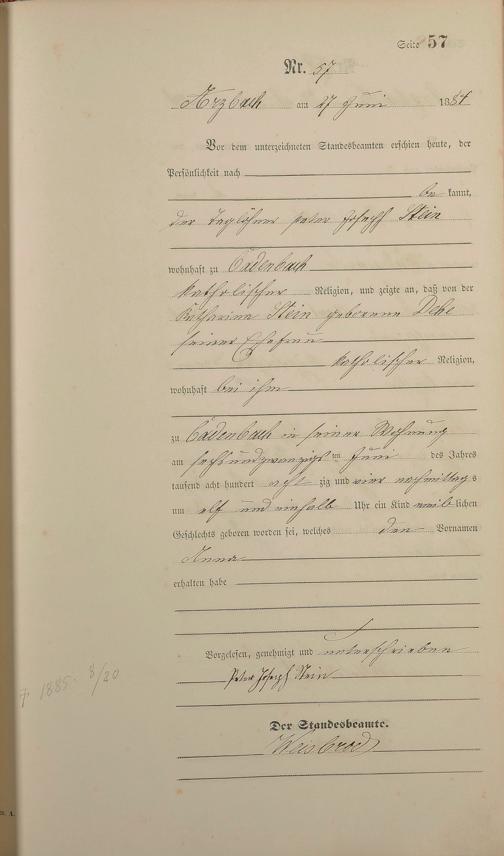 Seite 57
Nr. 57
Arzbach am 27 Juni 1884
Vor dem unterzeichneten Standesbeamten erschien heute, der
Persönlichkeit nach
be kannt,
der Taglöhner Peter Joseph Stein
wohnhaft zu Cadenbach
katholischer Religion, und zeigte an, daß von der
Katharina Stein geborene
seiner Ehefrau
katholischer Religion,
wohnhaft bei ihm
zu Cadenbach in seiner Wohnung
am sechsundzwanzigs ten Juni des Jahres
tausend acht hundert acht zig und vier nachmittag s
um elf und einhalb Uhr ein Kind weib lichen
Geschlechts geboren worden sei, welches den Vornamen
Anna
erhalten habe
Vorgelesen, genehmigt und unterschrieben
Peter Joseph Stein
Der Standesbeamte.
Weisbrod
† 1885 8/20